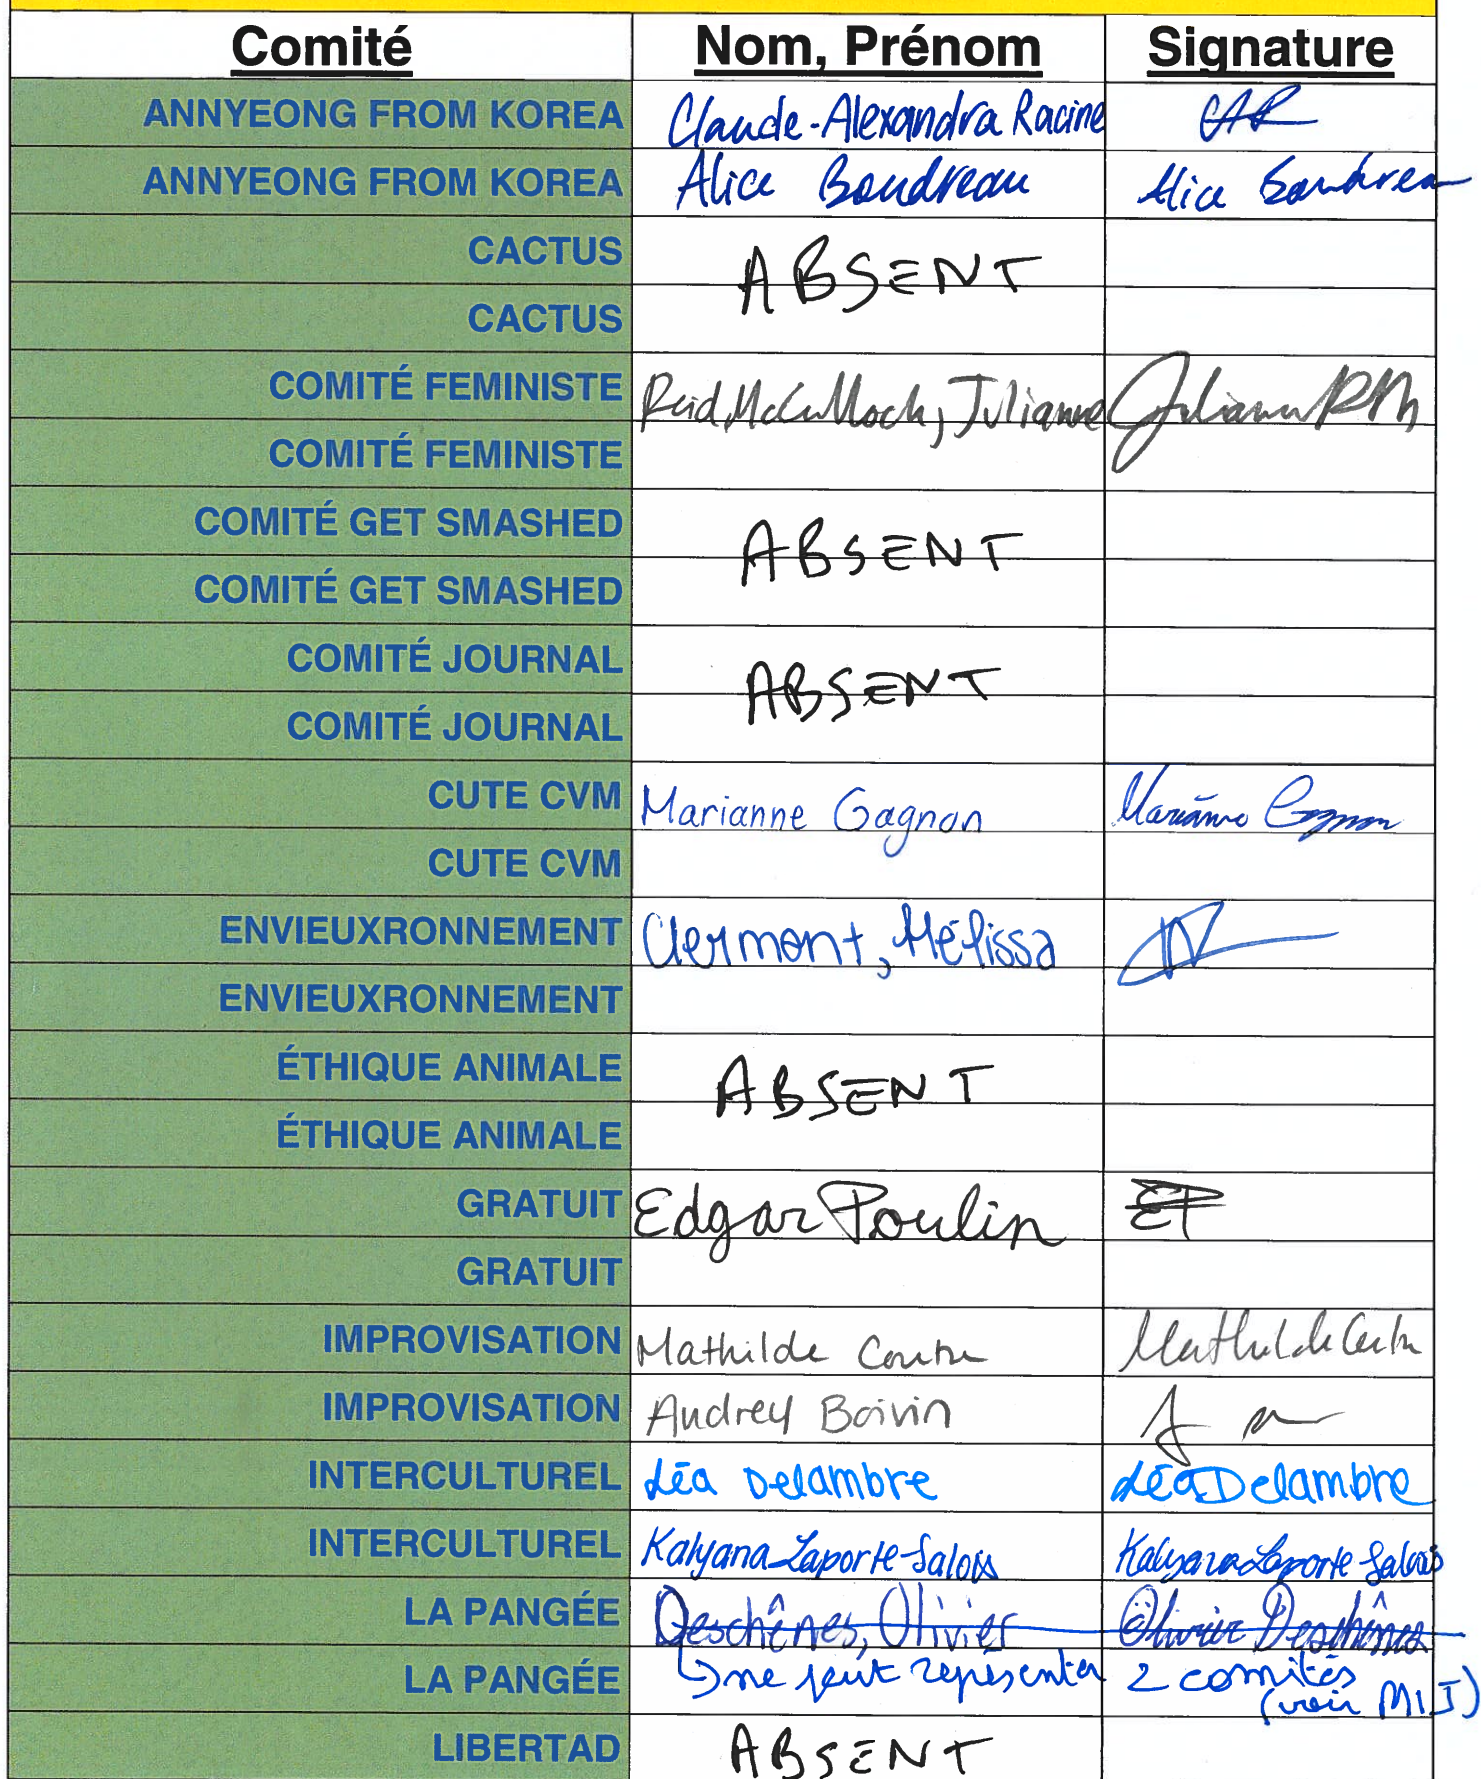 Comité Nom, Prénom Signature
ANNYEONG FROM KOREA Claude-Alexandra Racine CAR
ANNYEONG FROM KOREA Alice Boudreau Alice Boudreau
CACTUS ABSENT
CACTUS
COMITÉ FEMINISTE Reid McCulloch, Julianne Julianne RM
COMITÉ FEMINISTE
COMITÉ GET SMASHED ABSENT
COMITÉ GET SMASHED
COMITÉ JOURNAL ABSENT
COMITÉ JOURNAL
CUTE CVM Marianne Gagnon Marianne Gagnon
CUTE CVM
ENVIEUXRONNEMENT Clermont, Mélissa
ENVIEUXRONNEMENT
ÉTHIQUE ANIMALE ABSENT
ÉTHIQUE ANIMALE
GRATUIT Edgar Poulin EP
GRATUIT
IMPROVISATION Mathilde Coutu Mathilde Coutu
IMPROVISATION Audrey Boivin
INTERCULTUREL Léa Delambre Léa Delambre
INTERCULTUREL Kalyana Laporte-Salois Kalyana Laporte Salois
LA PANGÉE Deschênes, Olivier Olivier Deschênes
LA PANGÉE ↳ ne peut représenter 2 comités
(voir MIJ)
LIBERTAD ABSENT